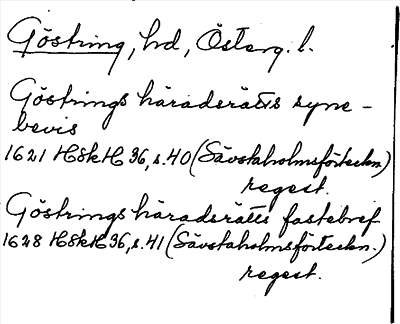 Göstring, hd, Österg. l.
Göstrings häradsrätts syne-
bevis
1621 HSkH 36, s. 40 (Sävstaholmsförteckn.)
regest.
Göstrings häradsrätts fastebref
1628 HSkH 36, s. 41 (Sävstaholmsförteckn.)
regest.